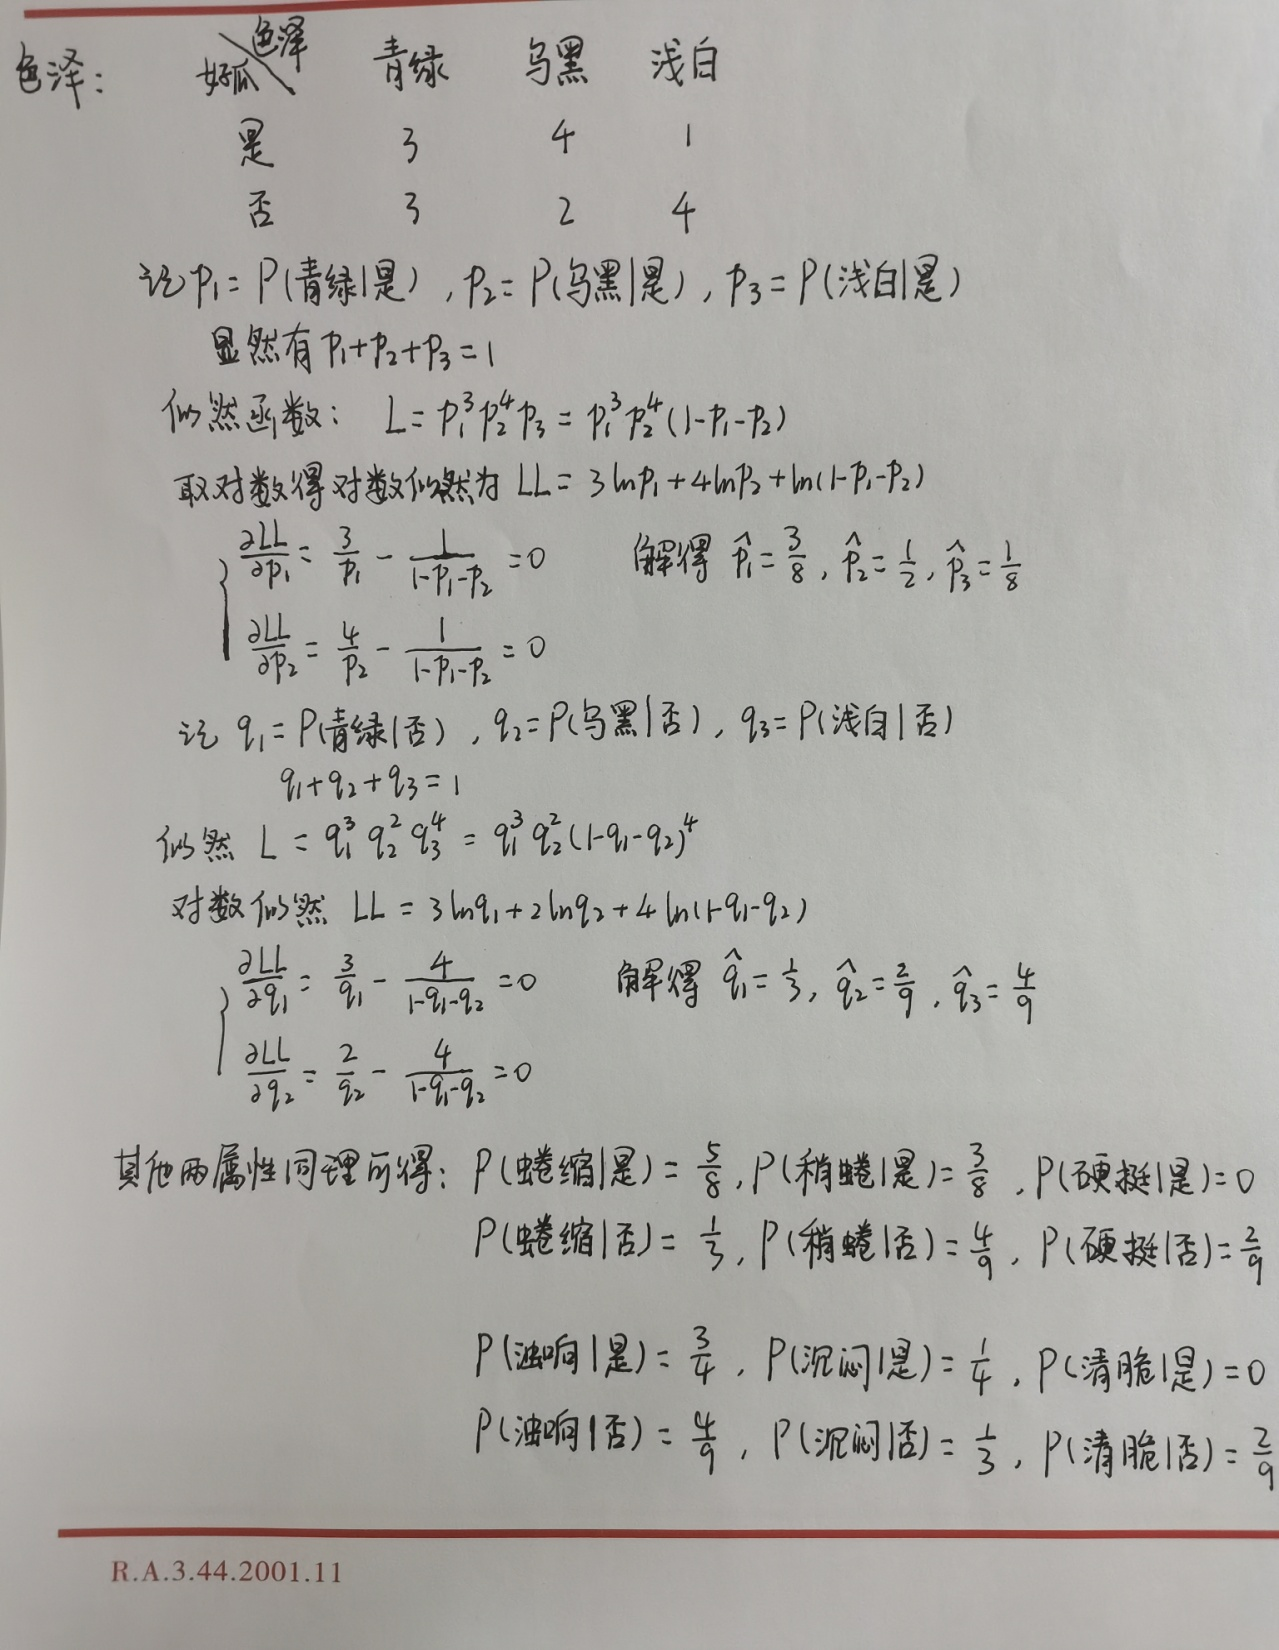 色泽: 好瓜\色泽 青绿 乌黑 浅白
是 3 4 1
否 3 2 4
记 p₁= P(青绿|是), p₂= P(乌黑|是), p₃= P(浅白|是)
显然有 p₁+p₂+p₃=1
似然函数: L= p₁³p₂⁴p₃ = p₁³p₂⁴(1-p₁-p₂)
取对数得对数似然为 LL= 3lnp₁+4lnp₂+ln(1-p₁-p₂)
∂LL/∂p₁ = 3/p₁ - 1/(1-p₁-p₂) =0 解得 p̂₁=3/8, p̂₂=1/2, p̂₃=1/8
∂LL/∂p₂ = 4/p₂ - 1/(1-p₁-p₂) =0
记 q₁= P(青绿|否), q₂= P(乌黑|否), q₃= P(浅白|否)
q₁+q₂+q₃=1
似然 L = q₁³q₂²q₃⁴ = q₁³q₂²(1-q₁-q₂)⁴
对数似然 LL = 3lnq₁+2lnq₂+4ln(1-q₁-q₂)
∂LL/∂q₁ = 3/q₁ - 4/(1-q₁-q₂) =0 解得 q̂₁=1/3, q̂₂=2/9, q̂₃=4/9
∂LL/∂q₂ = 2/q₂ - 4/(1-q₁-q₂) =0
其他两属性同理可得: P(蜷缩|是)= 5/8, P(稍蜷|是)= 3/8, P(硬挺|是)=0
P(蜷缩|否)= 1/3, P(稍蜷|否)= 4/9, P(硬挺|否)= 2/9
P(浊响|是)= 3/4, P(沉闷|是)= 1/4, P(清脆|是)=0
P(浊响|否)= 4/9, P(沉闷|否)= 1/3, P(清脆|否)= 2/9
R.A.3.44.2001.11